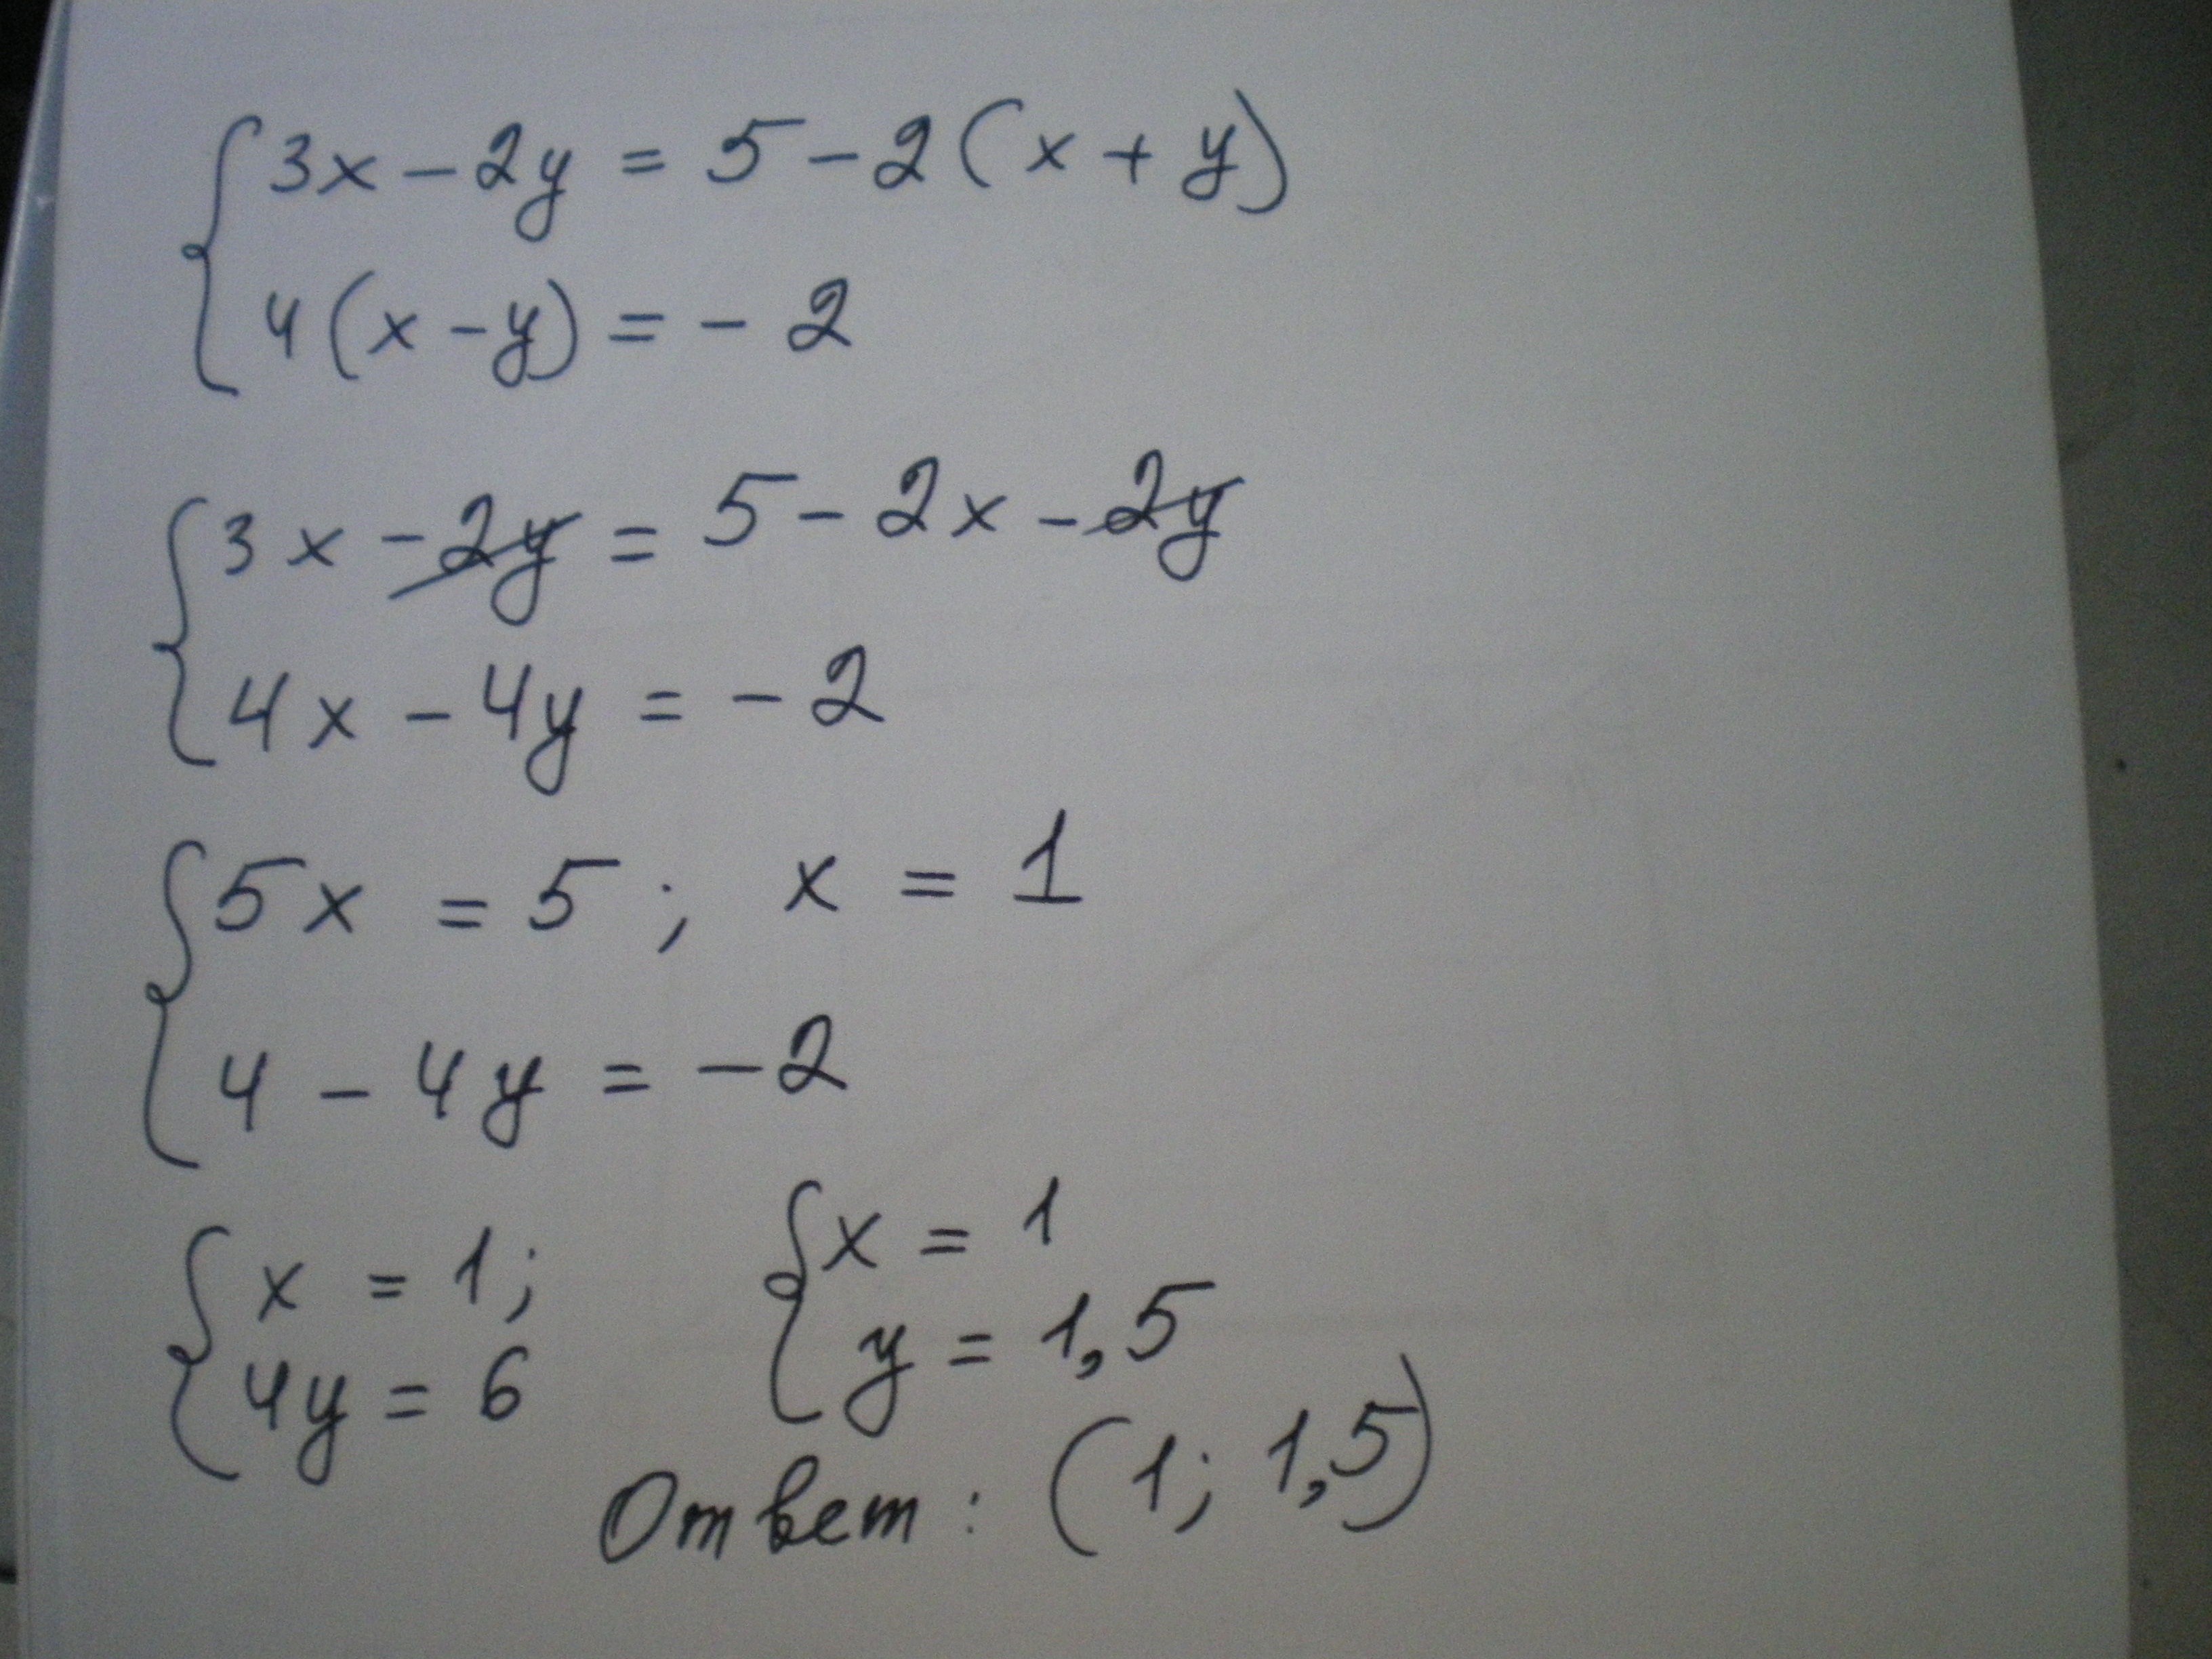 3x - 2y = 5 - 2(x + y)
4(x - y) = - 2
3x - 2y = 5 - 2x - 2y
4x - 4y = - 2
5x = 5; x = 1
4 - 4y = -2
x = 1; x = 1
4y = 6 y = 1,5
Ответ: (1; 1,5)